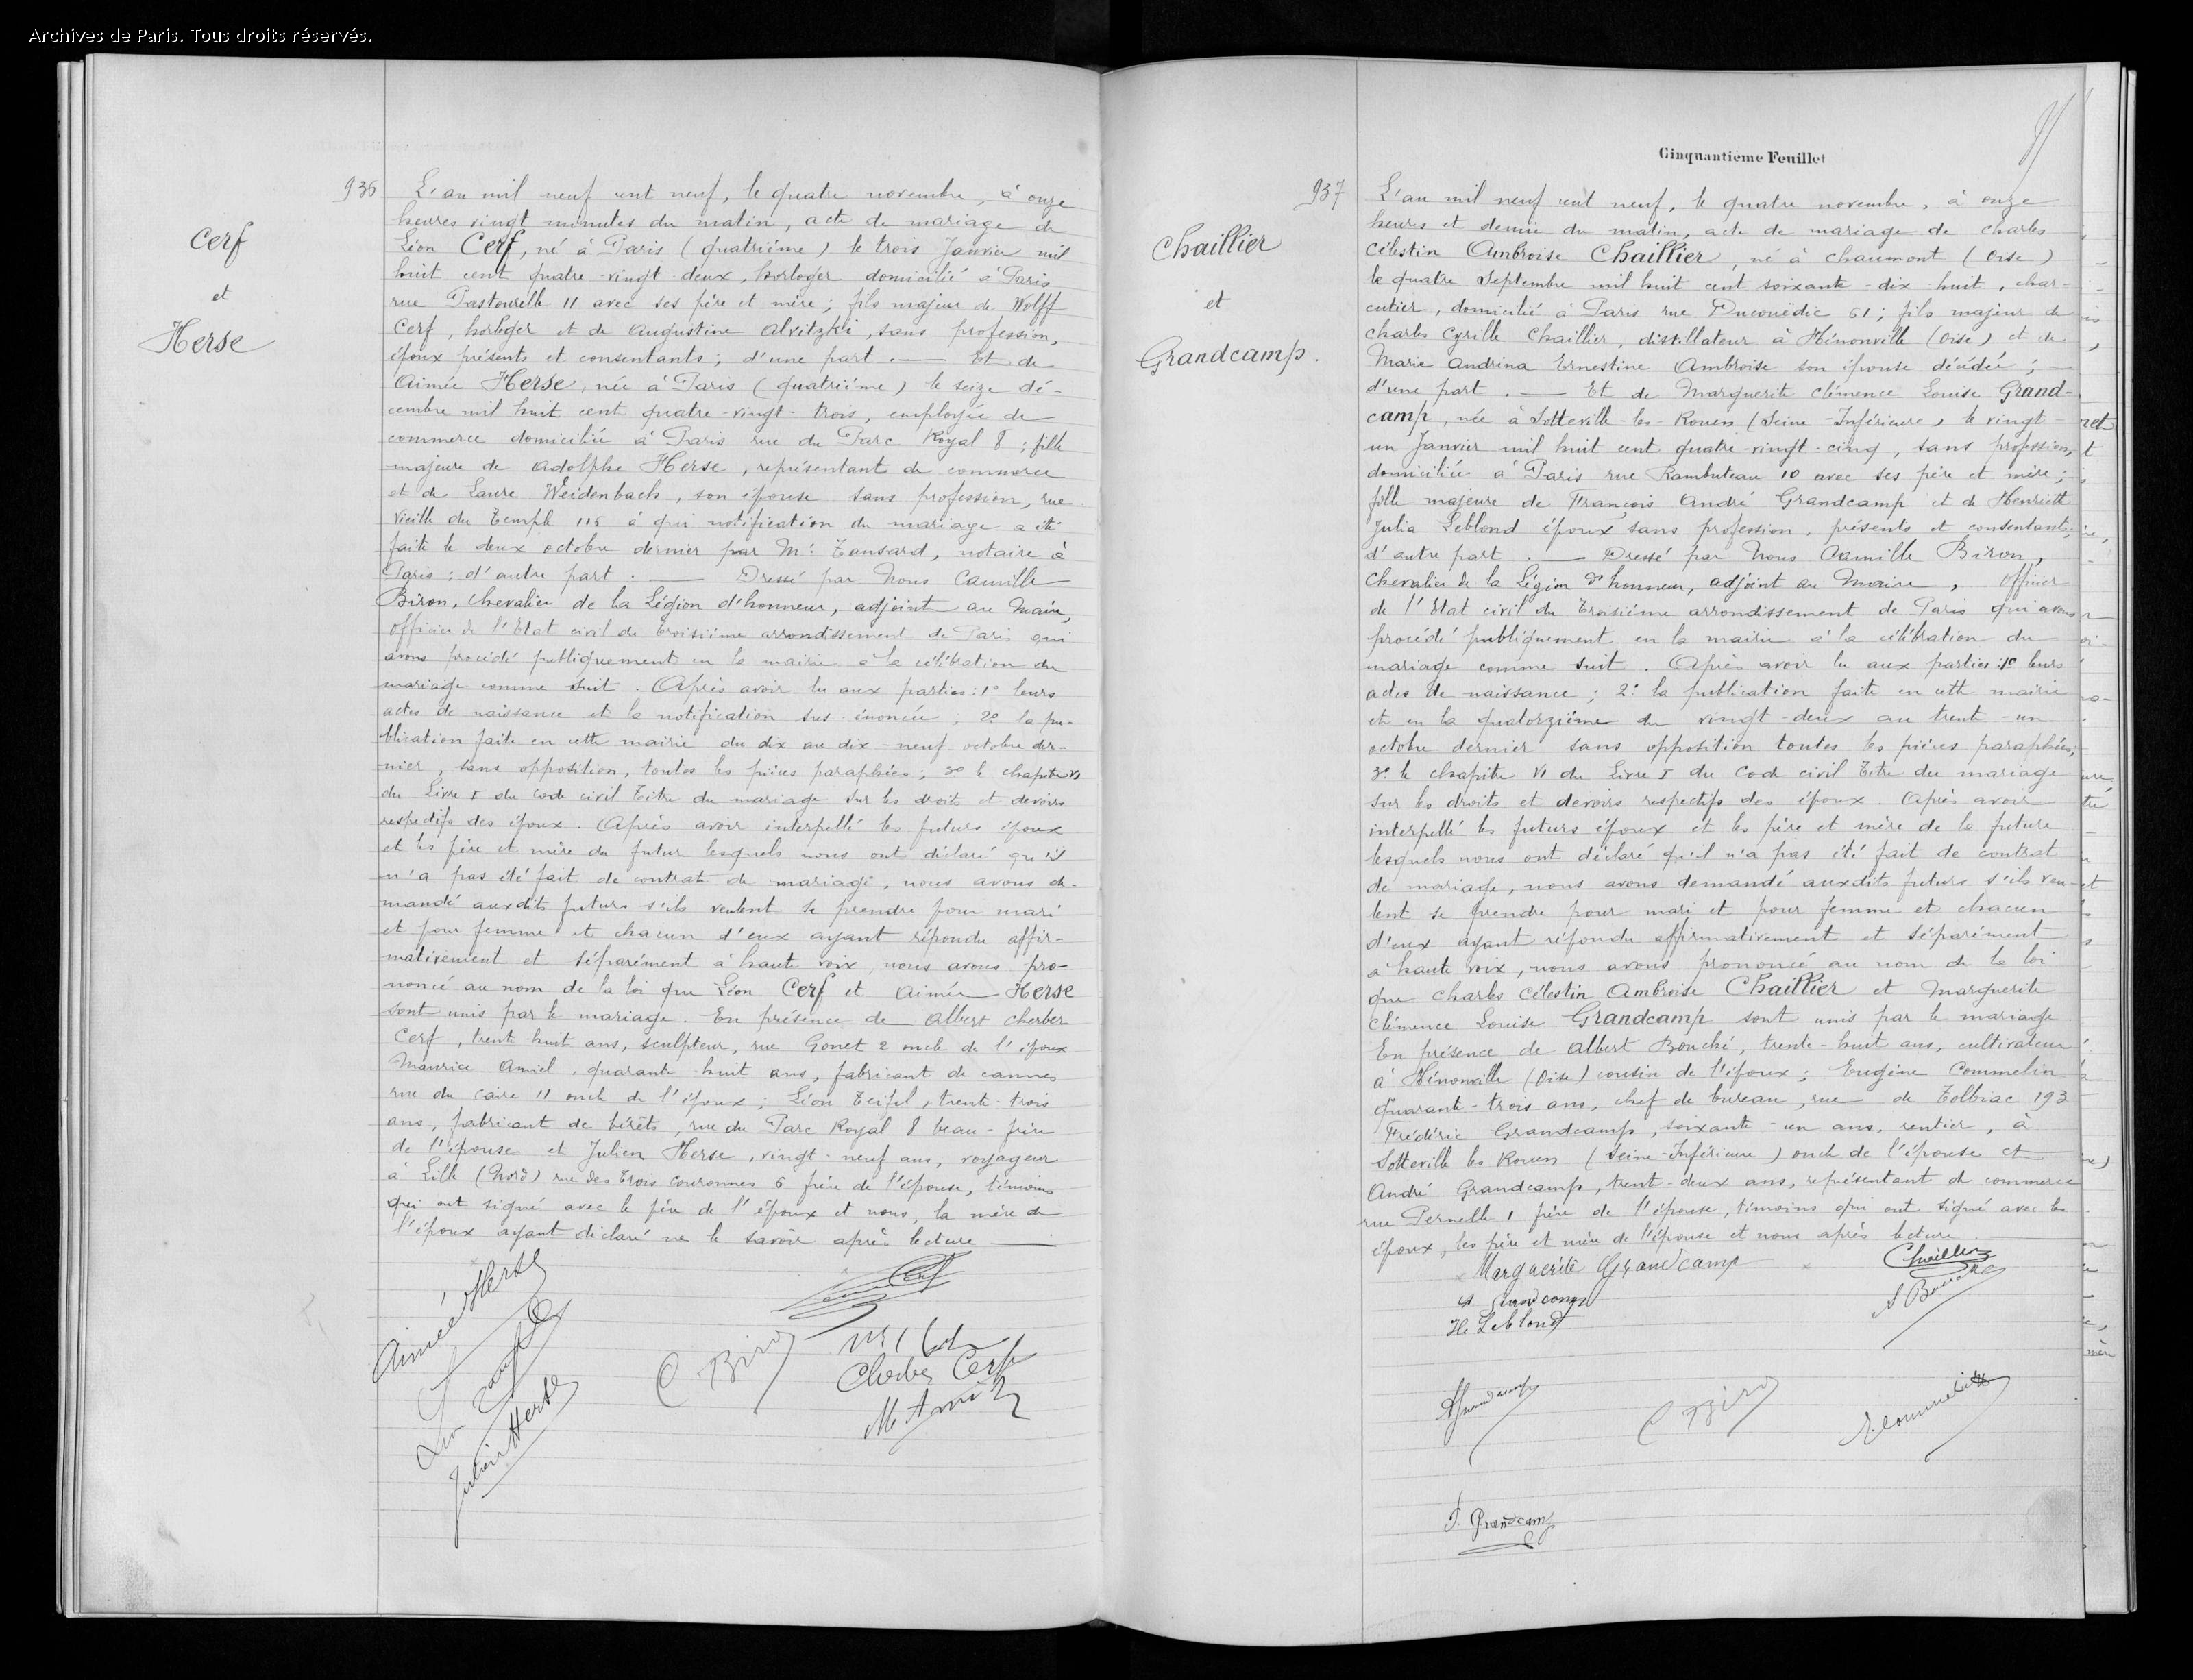 Archives de Paris. Tous droits réservés.
936
Cerf
et
Herse
L'an mil neuf cent neuf, le quatre novembre, à onze
heures vingt minutes du matin, acte de mariage de
Léon Cerf, né à Paris (quatrième) le trois Janvier mil
huit cent quatre-vingt-deux, horloger domicilié à Paris
rue Pastourelle 11 avec ses père et mère; fils majeur de Wolff
Cerf, horloger et de Augustine Alvitzki, sans profession,
époux présents et consentants; d'une part. — Et de
Aimée Herse, née à Paris (quatrième) le seize dé-
cembre mil huit cent quatre-vingt-trois, employée de
commerce domiciliée à Paris rue du Parc Royal 8; fille
majeure de Adolphe Herse, représentant de commerce
et de Laure Weidenbach, son épouse sans profession, rue
Vieille du Temple 115 à qui notification du mariage a été
faite le deux octobre dernier par Me Tansard, notaire à
Paris; d'autre part. — Dressé par Nous Camille
Biron, Chevalier de la Légion d'honneur, adjoint au Maire,
officier de l'Etat civil du troisième arrondissement de Paris qui
avons procédé publiquement en la mairie à la célébration du
mariage comme suit. Après avoir lu aux parties: 1° leurs
actes de naissance et la notification sus-énoncée; 2° la pu-
blication faite en cette mairie du dix au dix-neuf octobre der-
nier, sans opposition, toutes les pièces paraphées; 3° le chapitre VI
du Livre I du Code civil Titre du mariage sur les droits et devoirs
respectifs des époux. Après avoir interpellé les futurs époux
et les père et mère du futur lesquels nous ont déclaré qu'il
n'a pas été fait de contrat de mariage, nous avons de-
mandé auxdits futurs s'ils veulent se prendre pour mari
et pour femme et chacun d'eux ayant répondu affir-
mativement et séparément à haute voix, nous avons pro-
noncé au nom de la loi que Léon Cerf et Aimée Herse
sont unis par le mariage. En présence de Albert Cherber
Cerf, trente-huit ans, sculpteur, rue Gonet 2 oncle de l'époux
Maurice Amiel, quarante-huit ans, fabricant de cannes
rue du Caire 11 oncle de l'époux; Léon Zeifel, trente-trois
ans, fabricant de bérêts, rue du Parc Royal 8 beau-frère
de l'épouse et Julien Herse, vingt-neuf ans, voyageur
à Lille (Nord) rue des Trois Couronnes 6 frère de l'épouse, témoins
qui ont signé avec le père de l'époux et nous, la mère de
l'époux ayant déclaré ne le savoir après lecture —
Aimée Herse
Cerf
Julien Herse
C Biron
Cherber Cerf
M Amiel
Cinquantième Feuillet
937
Chaillier
et
Grandcamp.
L'an mil neuf cent neuf, le quatre novembre, à onze
heures et demie du matin, acte de mariage de Charles
Célestin Ambroise Chaillier, né à Chaumont (Oise)
le quatre Septembre mil huit cent soixante-dix-huit, char-
cutier, domicilié à Paris rue Ducouëdic 61; fils majeur de
Charles Cyrille Chaillier, distillateur à Hénonville (Oise) et de
Marie Andrina Ernestine Ambroise son épouse décédée; —
d'une part. — Et de Marguerite Clémence Louise Grand-
camp, née à Sotteville-les-Rouen (Seine-Inférieure) le vingt-
un Janvier mil huit cent quatre-vingt-cinq, sans profession,
domiciliée à Paris rue Rambuteau 10 avec ses père et mère;
fille majeure de François André Grandcamp et de Henriette
Julia Leblond époux sans profession, présents et consentants;
d'autre part. — Dressé par Nous Camille Biron,
Chevalier de la Légion d'honneur, adjoint au Maire, officier
de l'Etat civil du Troisième arrondissement de Paris qui avons
procédé publiquement en la mairie à la célébration du
mariage comme suit. Après avoir lu aux parties: 1° leurs
actes de naissance; 2° la publication faite en cette mairie
et en la quatorzième du vingt-deux au trente-un
octobre dernier sans opposition toutes les pièces paraphées;
3° le chapitre VI du Livre I du Code civil Titre du mariage
sur les droits et devoirs respectifs des époux. Après avoir
interpellé les futurs époux et les père et mère de la future
lesquels nous ont déclaré qu'il n'a pas été fait de contrat
de mariage, nous avons demandé auxdits futurs s'ils veu-
lent se prendre pour mari et pour femme et chacun
d'eux ayant répondu affirmativement et séparément
à haute voix, nous avons prononcé au nom de la loi
que Charles Célestin Ambroise Chaillier et Marguerite
Clémence Louise Grandcamp sont unis par le mariage.
En présence de Albert Bouché, trente-huit ans, cultivateur
à Hénonville (Oise) cousin de l'époux; Eugène Commelin
quarante-trois ans, chef de bureau, rue de Tolbiac 193
Frédéric Grandcamp, soixante-un ans, rentier, à
Sotteville les Rouen (Seine-Inférieure) oncle de l'épouse et
André Grandcamp, trente-deux ans, représentant de commerce
rue Pernelle 1 frère de l'épouse, témoins qui ont signé avec les
époux, les père et mère de l'épouse et nous après lecture. —
Marguerite Grandcamp
Chaillier
Grandcamp
A Bouché
H Leblond
AGrandcamp
C Biron
E Commelin
f. Grandcamp